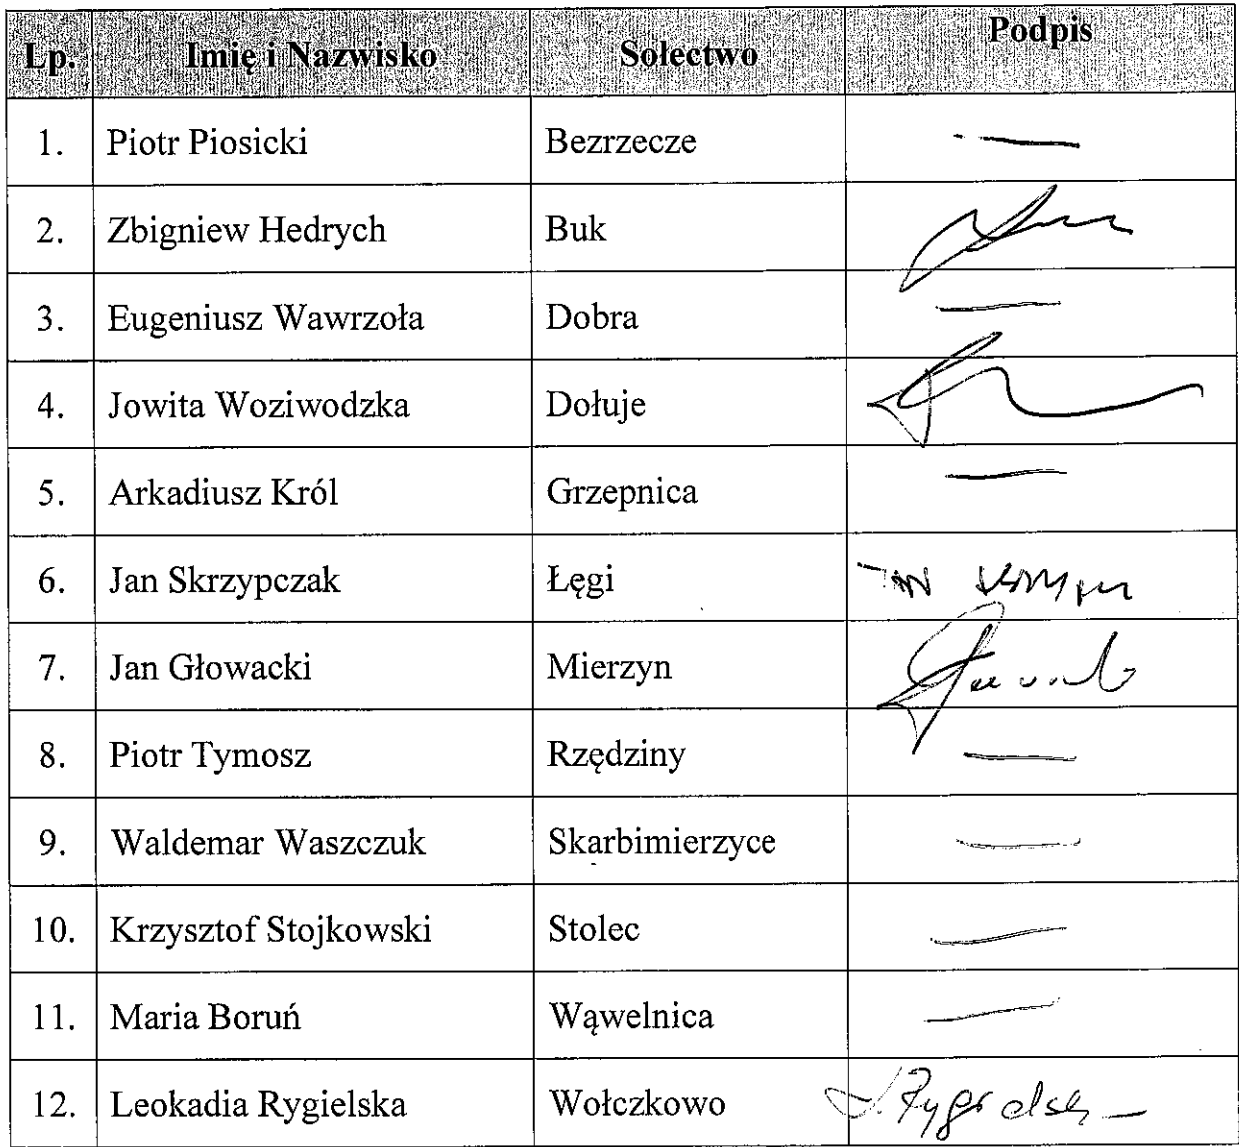 Lp. Imię i Nazwisko Sołectwo Podpis
1. Piotr Piosicki Bezrzecze —
2. Zbigniew Hedrych Buk
3. Eugeniusz Wawrzoła Dobra —
4. Jowita Woziwodzka Dołuje
5. Arkadiusz Król Grzepnica —
6. Jan Skrzypczak Łęgi
7. Jan Głowacki Mierzyn
8. Piotr Tymosz Rzędziny —
9. Waldemar Waszczuk Skarbimierzyce —
10. Krzysztof Stojkowski Stolec —
11. Maria Boruń Wąwelnica —
12. Leokadia Rygielska Wołczkowo